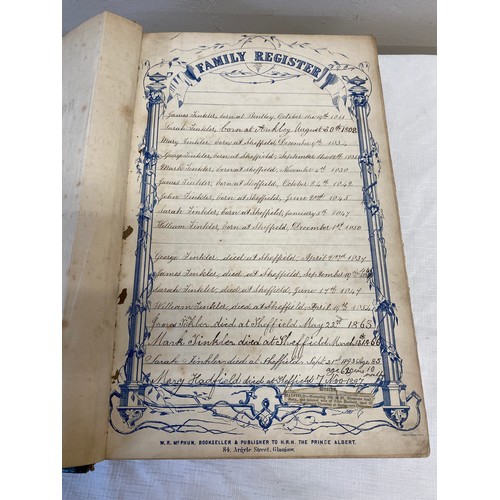 FAMILY REGISTER
James Tinkler, born at Bentley, October the 19th
Sarah Tinkler, born at Ankley August 30th 1808
Mary Tinkler, born at Sheffield, December 9th 1834
George Tinkler, born at Sheffield, September the
Mark Tinkler, born at Sheffield, November 4th
James Tinkler, born at Sheffield, October 24th 1842
John Tinkler, born at Sheffield, June 1845
Sarah Tinkler, born at Sheffield, January 5th 1847
William Tinkler, born at Sheffield, December 1st 1850
George Tinkler died at Sheffield, April 1837
James Tinkler, died at Sheffield, September 10th
Sarah Tinkler, died at Sheffield, June 17th 1847
William Tinkler, died at Sheffield, April 19th 1854
James Tinkler died at Sheffield May 23rd 1865
Mark Tinkler died at Sheffield March 1866
Sarah Tinkler died at Sheffield Sept 21st 1893 Age 85
age 62 10
Mary Hadfield died at Sheffield 7 Nov 1897
Deaths.
W. R. McPHUN, BOOKSELLER & PUBLISHER TO H.R.H. THE PRINCE ALBERT,
84, Argyle Street, Glasgow.